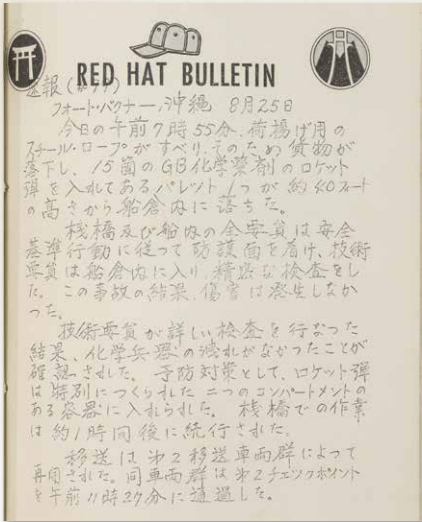 RED HAT BULLETIN
速報(
フォート・バクナー、沖縄 8月25日
今日の午前7時55分、荷揚げ用の
スチール・ロープがすべり、そのため貨物が
落下し、15箇のGB化学薬剤のロケット
弾を入れてあるパレット1つが約40フィート
の高さから船倉内に落ちた。
桟橋及び船内の全要員は安全
基準行動に従って防護面を着け、技術
要員は船倉内に入り、精密な検査をし
た。この事故の結果、傷害は発生しなか
った。
技術要員が詳しい検査を行なった
結果、化学兵器の洩れがなかったことが
確認された。予防対策として、ロケット弾
は特別につくられた二つのコンパートメントの
ある容器に入れられた。桟橋での作業
は約1時間後に続行された。
移送は第2移送車両群によって
再開された。同車両群は第2チェックポイント
を午前11時27分に通過した。